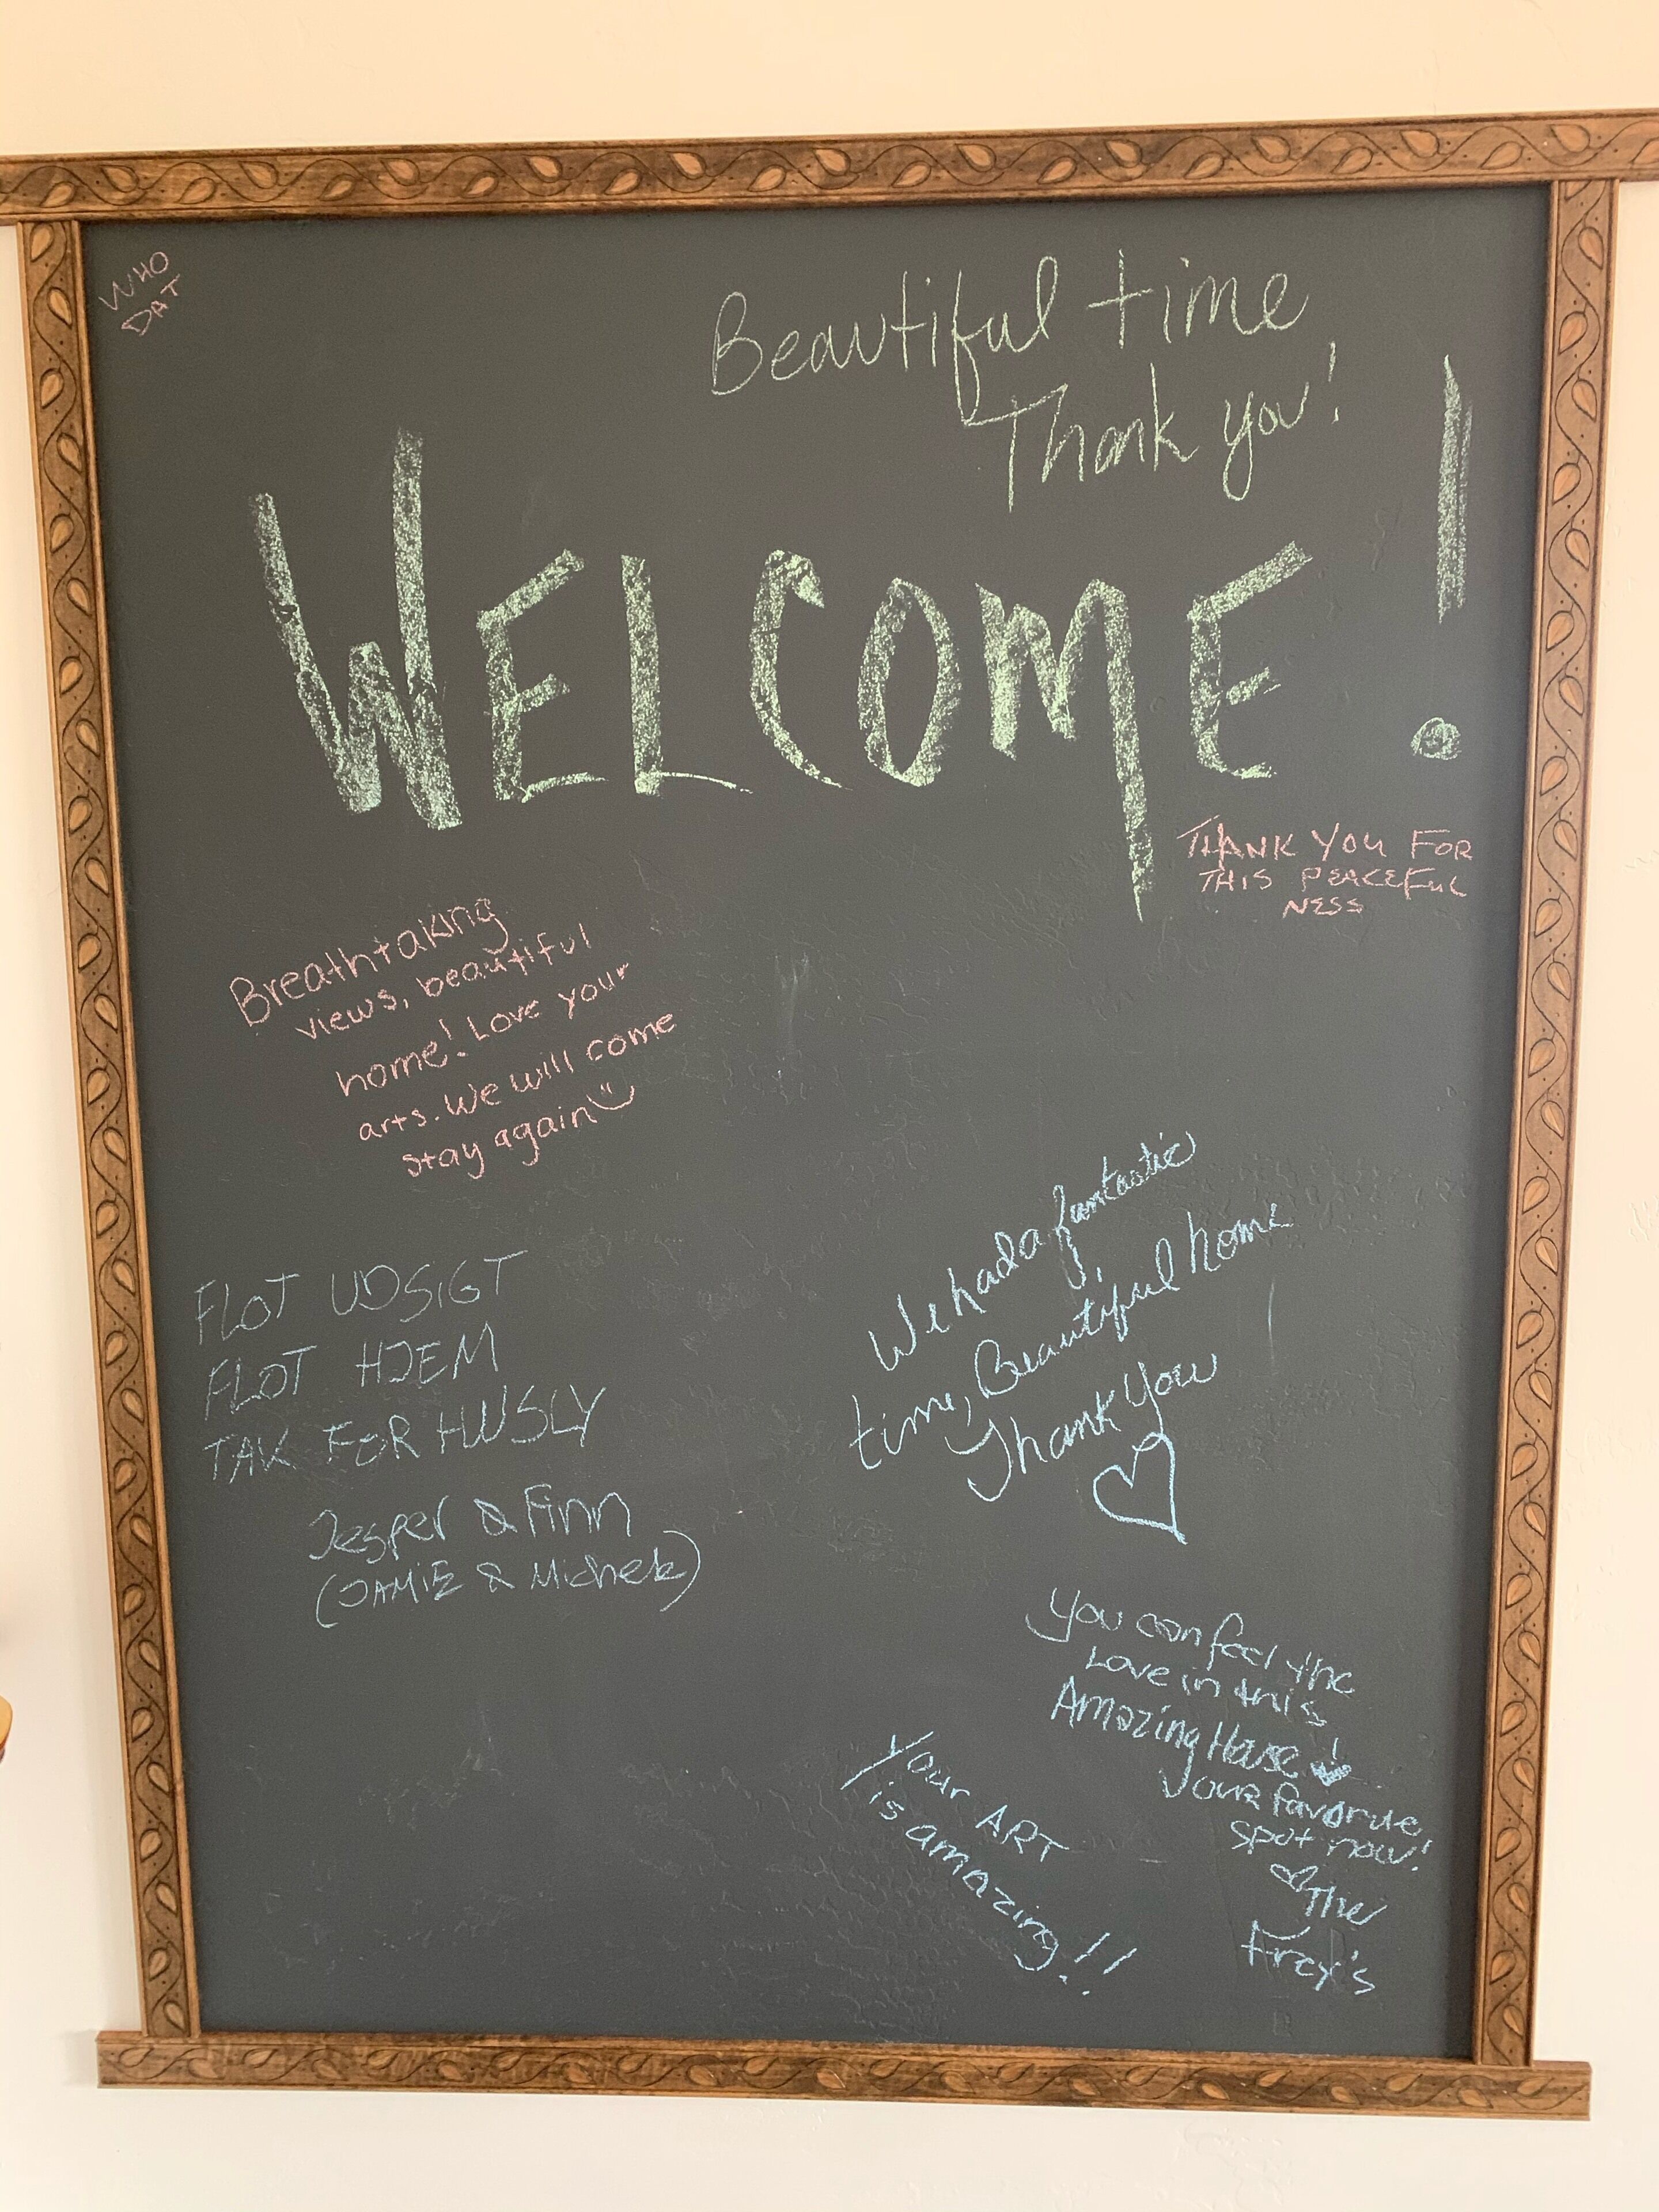 WHO
DAT
Beautiful time
Thank you!
WELCOME!
THANK YOU FOR
THIS PEACEFUL
NESS
Breathtaking
views, beautiful
home! Love your
arts. We will come
stay again
We had a fantastic
time, Beautiful home
Thank You
FLOT UDSIGT
FLOT HJEM
TAK FOR HUSLY
Jesper & Finn
(JAMIE & Michele)
You can feel the
Love in this
Amazing House!
your favorite
spot now!
The
Frey's
Your ART
is amazing!!